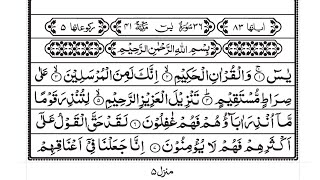 اٰیاتها ٨٣ ٣٦ سُوْرَةُ یٰسٓ مَکِّیَّةٌ ٤١ رکوعاتها ٥
بِسْمِ اللّٰهِ الرَّحْمٰنِ الرَّحِیْمِ
یٰسٓ ۚ وَالْقُرْاٰنِ الْحَکِیْمِ ۙ اِنَّكَ لَمِنَ الْمُرْسَلِیْنَ ۙ عَلٰی
صِرَاطٍ مُّسْتَقِیْمٍ ؕ تَنْزِیْلَ الْعَزِیْزِ الرَّحِیْمِ ۙ لِتُنْذِرَ قَوْمًا
مَّاۤ اُنْذِرَ اٰبَآؤُهُمْ فَهُمْ غٰفِلُوْنَ لَقَدْ حَقَّ الْقَوْلُ عَلٰۤی
اَکْثَرِهِمْ فَهُمْ لَا یُؤْمِنُوْنَ اِنَّا جَعَلْنَا فِیْۤ اَعْنَاقِهِمْ
منزل ٥